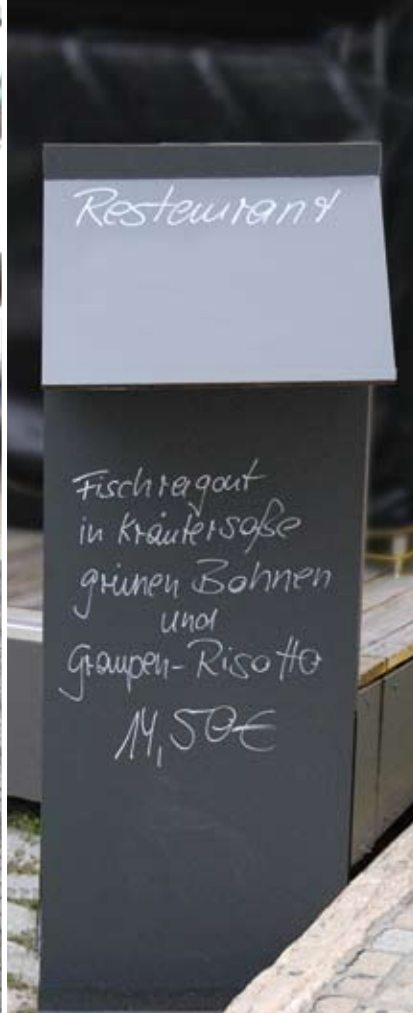 Restaurant
Fischragout
in Kräutersoße
grünen Bohnen
und
Graupen-Risotto
14,50€